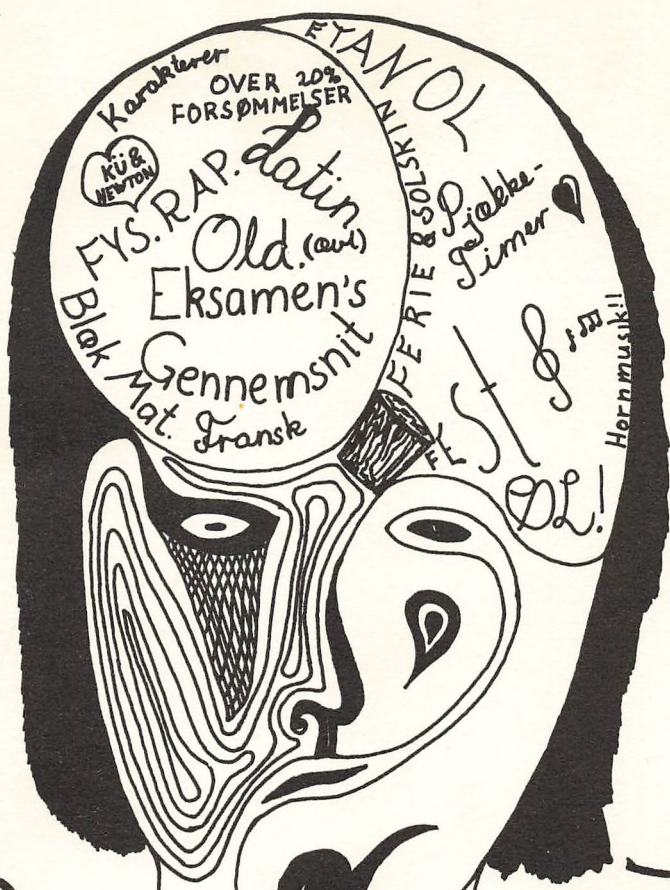 Karakterer
OVER 20%
FORSØMMELSER
KÜ &
NEWTON
FYS. RAP.
Latin
Old. (øvl)
Eksamen's
Gennemsnit
Blæk Mat. Fransk
ETANOL
FERIE & SOLSKIN
Pjække-
Timer
Hornmusik!!
FEST
ØL!